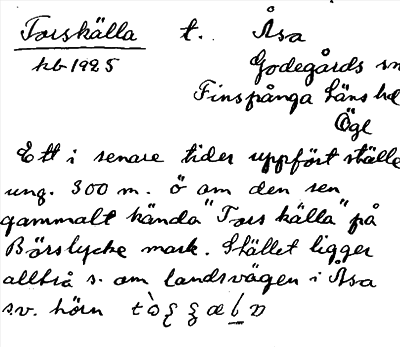 Torskälla t. Åsa
kb 1925 Godegårds sn
Finspånga läns hd
Ögl
Ett i senare tider uppfört ställe
ung. 300 m. ö om den sen
gammalt kända "Tors källa" på
Börslycke mark. Stället ligger
alltså s. om landsvägen i Åsa
sv. hörn